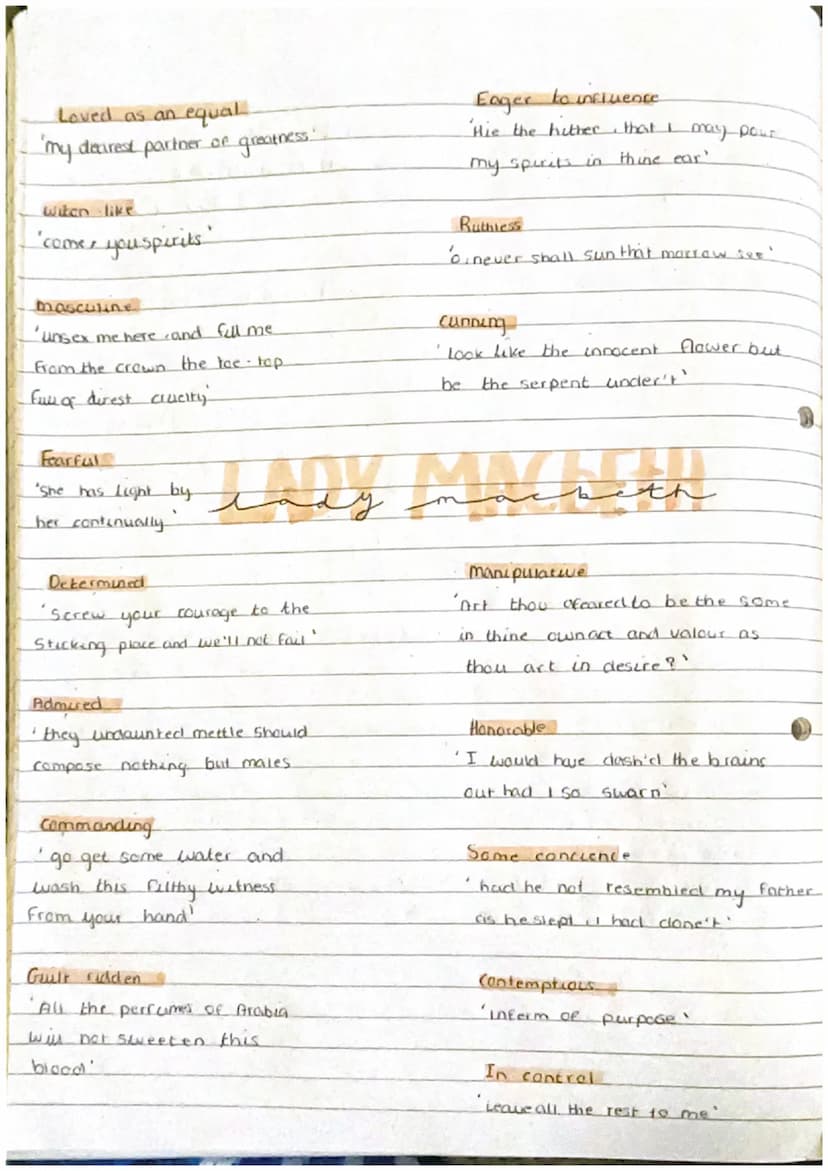 Loved as an equal
'my dearest partner of greatness'
witch like
'come, you spirits'
masculine
'unsex me here, and fill me
from the crown the toe-top
full of direst cruelty'
Fearful
'she has light by
her continually'
LADY MACBETH
lady macbeth
Determined
'Screw your courage to the
Sticking place and we'll not fail'
Admired
'they undaunted mettle should
compose nothing but males
Commanding
'go get some water and
wash this filthy witness
from your hand'
Guilt ridden
'All the perfumes of Arabia
will not sweeten this
blood'
Eager to influence
'Hie the hither, that I may pour
my spirits in thine ear'
Ruthless
'o, never shall sun that morrow see'
Cunning
'look like the innocent flower but
be the serpent under't'
Manipulative
'Art thou afeared to be the same
in thine own act and valour as
thou art in desire?'
Honorable
'I would have dash'd the brains
out had I so swarn'
Some concience
'had he not resembled my father
as he slept, I had done't'
Contemptious
'infirm of purpose'
In control
'Leave all the rest to me'